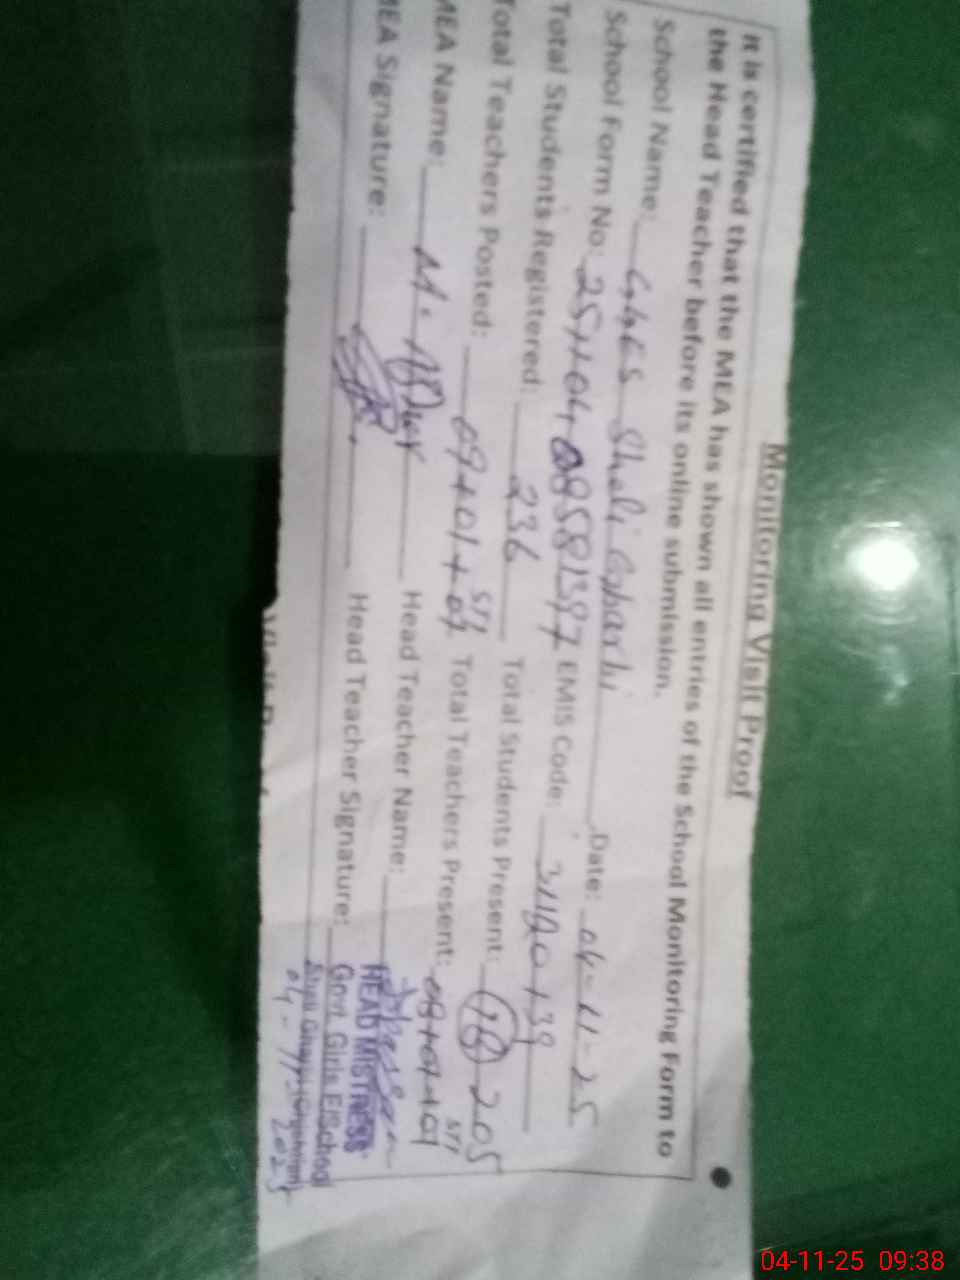 Monitoring Visit Proof
It is certified that the MEA has shown all entries of the School Monitoring Form to
the Head Teacher before its online submission.
School Name: GGES Sheli Gharbi Date: 04-11-25
School Form No: EMIS Code:
Total Students Registered: 236 Total Students Present: 205
Total Teachers Posted: 09+01+ STI Total Teachers Present: 08+01+01 STI
MEA Name: M. Head Teacher Name:
MEA Signature: Head Teacher Signature:
HEAD MISTRESS
Govt. Girls E/School
04-11-2025
04-11-25 09:38